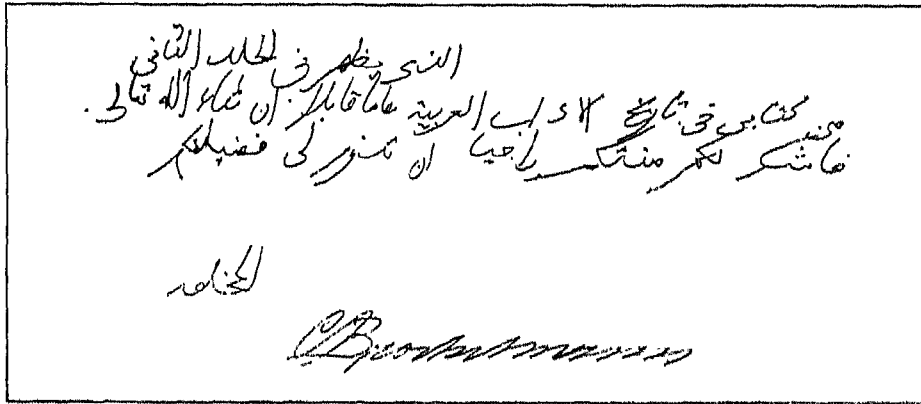 الذى يظهر فى المجلد الثانى
من كتابى فى تاريخ الاداب العربية عاما قابلا ان شاء الله تعالى.
فاشكر لكم منتكم راجيا ان لى فضيلتكم
المخلص
C. Brockelmann